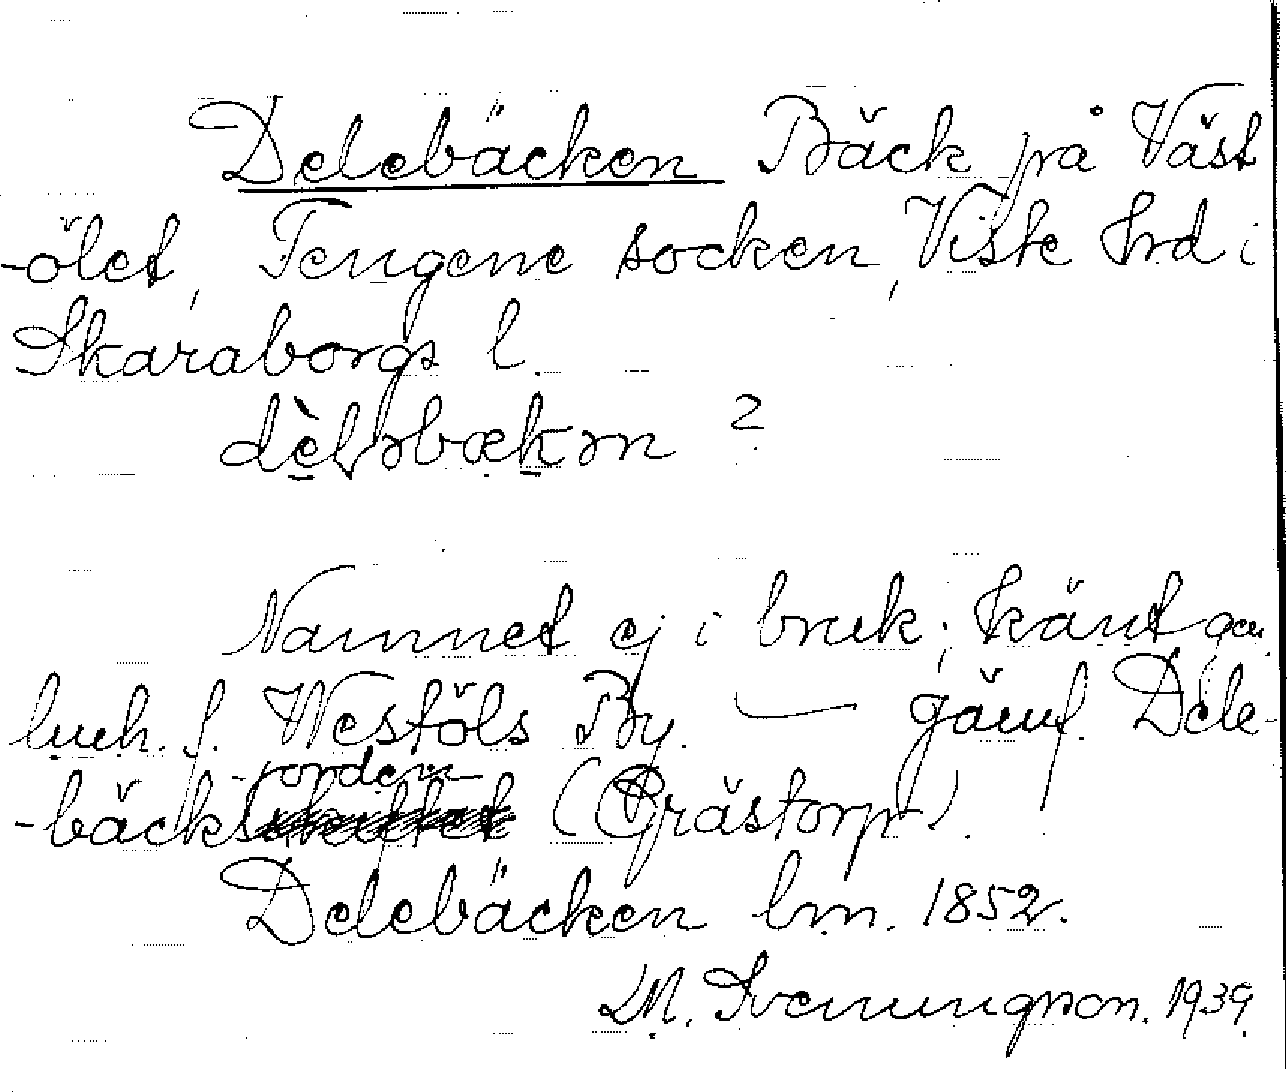 Delebäcken Bäck på Väst
-ölet, Tengene socken, Viste hrd i
Skaraborgs l.
dèləbækən ?
Namnet ej i bruk; känt gm
luch. f. Westöls By. — jämf. Dele-
-rorden-
-bäck (Grästorp).
Delebäcken lm. 1852.
M. Svenungson. 1939.